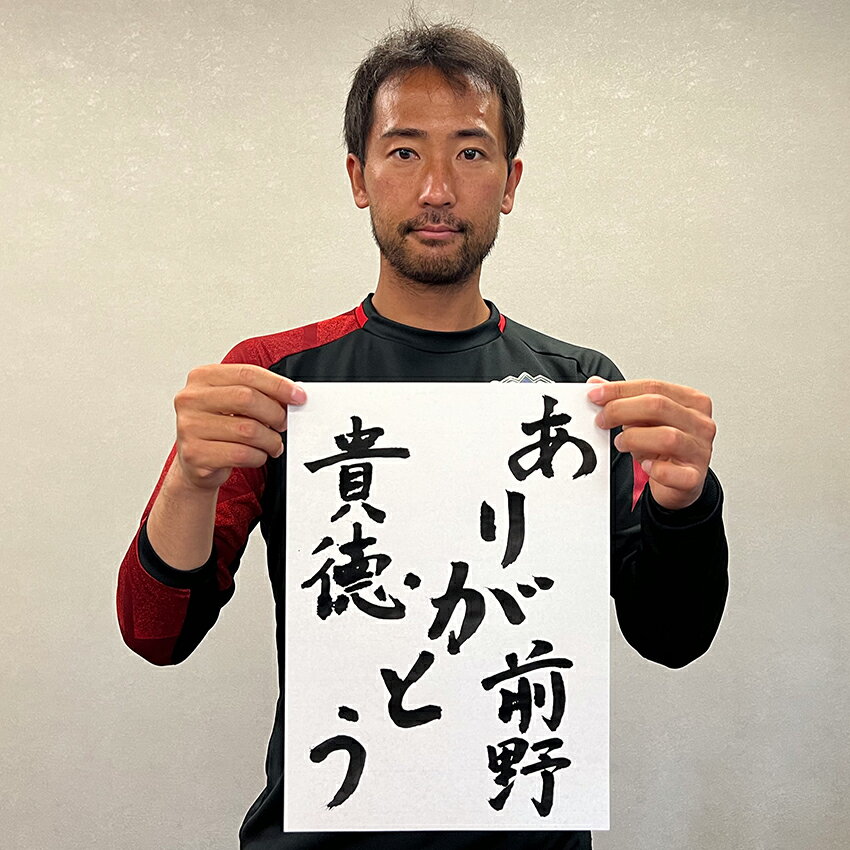 ありがとう
前野
貴徳